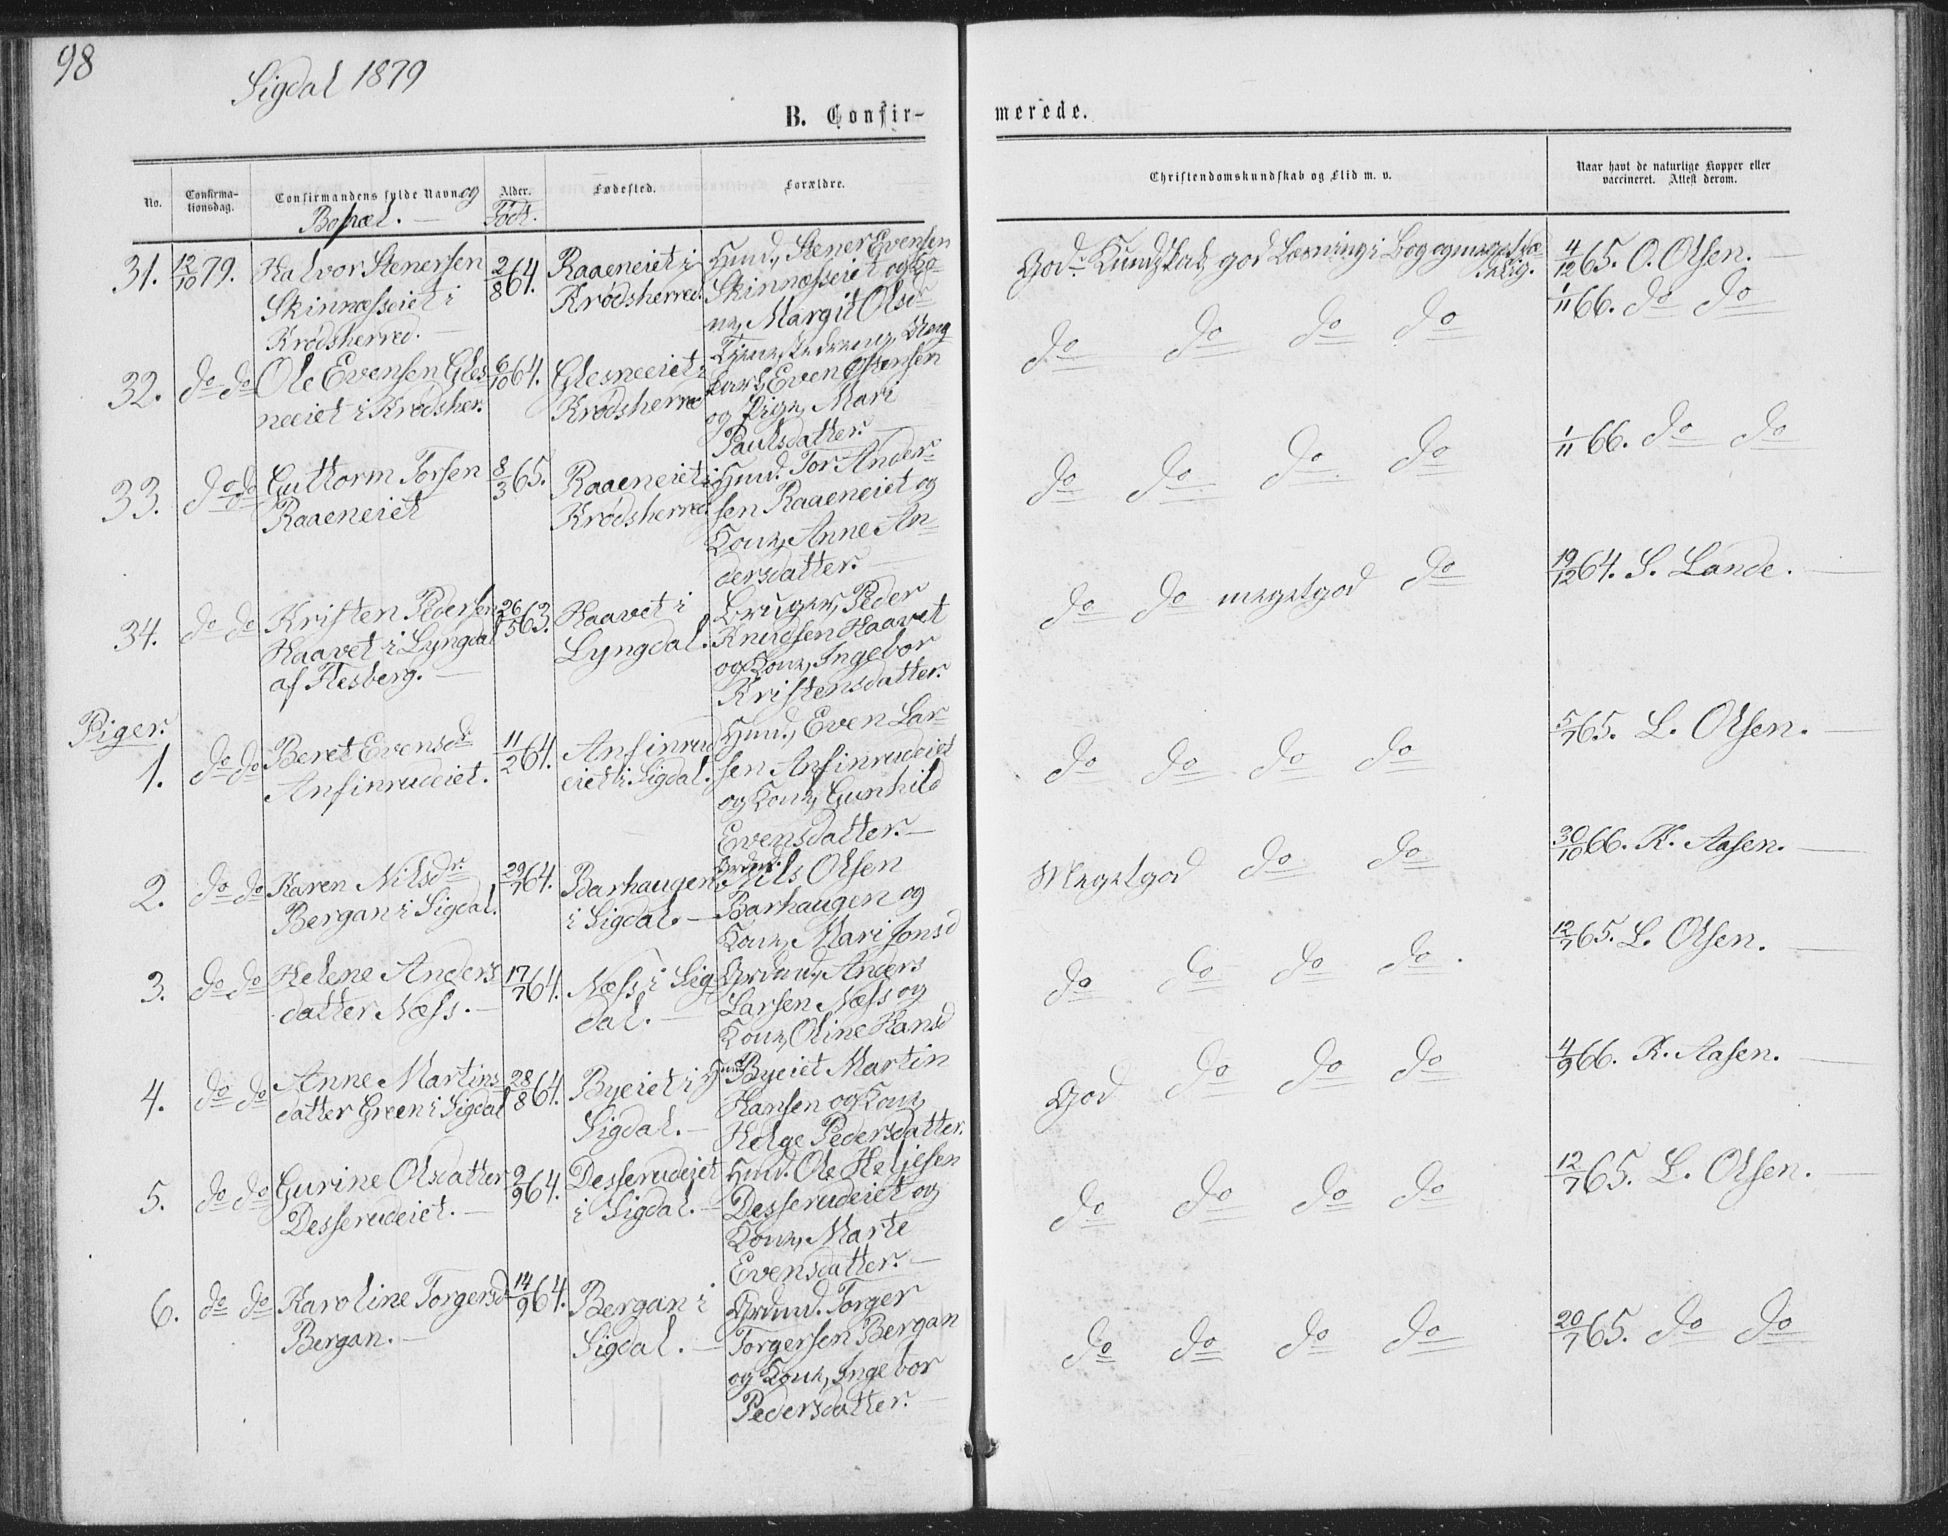 98
Sigdal 1879
B. Confir-
merede.
No.
Confirma-
tionsdag.
Confirmandens fulde Navn og
Bopæl.
Alder.
Født.
Fødested.
Forældre.
Christendomskundskab og Flid m. v.
Naar havt de naturlige Kopper eller
vaccineret. Attest derom.
31. 12/10 79. Halvor Stenersen
Skinnæsseiet i
Krødsherred.
2/8 64. Raaeneiet i
Krødsherred.
Husm. Stener Evensen
Skinnæsseiet og Ko-
ne, Margit Olsdr
God Kundskab, god Læsning i Bog og meget sæ-
delig.
4/12 65. O. Olsen.
32. do do Ole Evensen Gles
neeiet i Krødsher.
6/10 64. Glesneeiet i
Krødsherred
Ung
karl, Even Assensen
og Pige, Mari
Paulsdatter.
do do do do
1/11 66. do do
33. do do Guttorm Torsen
Raaeneiet
8/3 65. Raaeneiet i
Krødsherred.
Husm. Tor Ander-
sen Raaeneiet og
Kone, Anne An-
dersdatter.
do do do do
1/11 66. do do
34. do do Kristen Pedersen
Haavet i Lyngdal
af Flesberg.
26/5 63. Haavet i
Lyngdal.
Bruger, Peder
Knudsen Haavet
og Kone, Ingebor
Kristensdatter.
do do megetgod do
19/12 64. S. Lande.
Piger.
1. do do Beret Evensdr
Anfinrudeiet.
11/2 64. Anfinrud
eiet i Sigdal.
Husm., Even Lar-
sen Anfinrudeiet
og Kone, Gunhild
Evensdatter.
do do do do
5/7 65. L. Olsen.
2. do do Karen Nilsdr
Bergan i Sigdal.
29/7 64. Barhaugen
i Sigdal.
Nils Olsen
Barhaugen og
Kone, Mari Jonsd
Megetgod do do
30/10 66. K. Aasen.
3. do do Helene Anders
datter Næss.
17/7 64. Næss i Sig
dal.
Grdmd., Anders
Larsen Næss og
Kone, Oline Hansd
do do do do.
12/7 65. L. Olsen.
4. do do Anne Martins
datter Green i Sigdal
28/8 64. Byeiet i
Sigdal.
Husm Byeiet Martin
Hansen og Kone,
Helge Pedersdatter.
God do do do
4/9 66. K. Aasen.
5. do do Gurine Olsdatter
Desserudeiet.
9/9 64. Desserudeiet
i Sigdal.
Husm. Ole Heljesen
Desserudeiet og
Kone, Marte
Evensdatter.
do do do do
12/7 65. L. Olsen.
6. do do Karoline Torgersd
Bergan.
14/9 64. Bergan i
Sigdal.
Grdmd. Torger
Torgersen Bergan
og Kone, Ingebor
Pedersdatter.
do do do do
20/7 65. do do